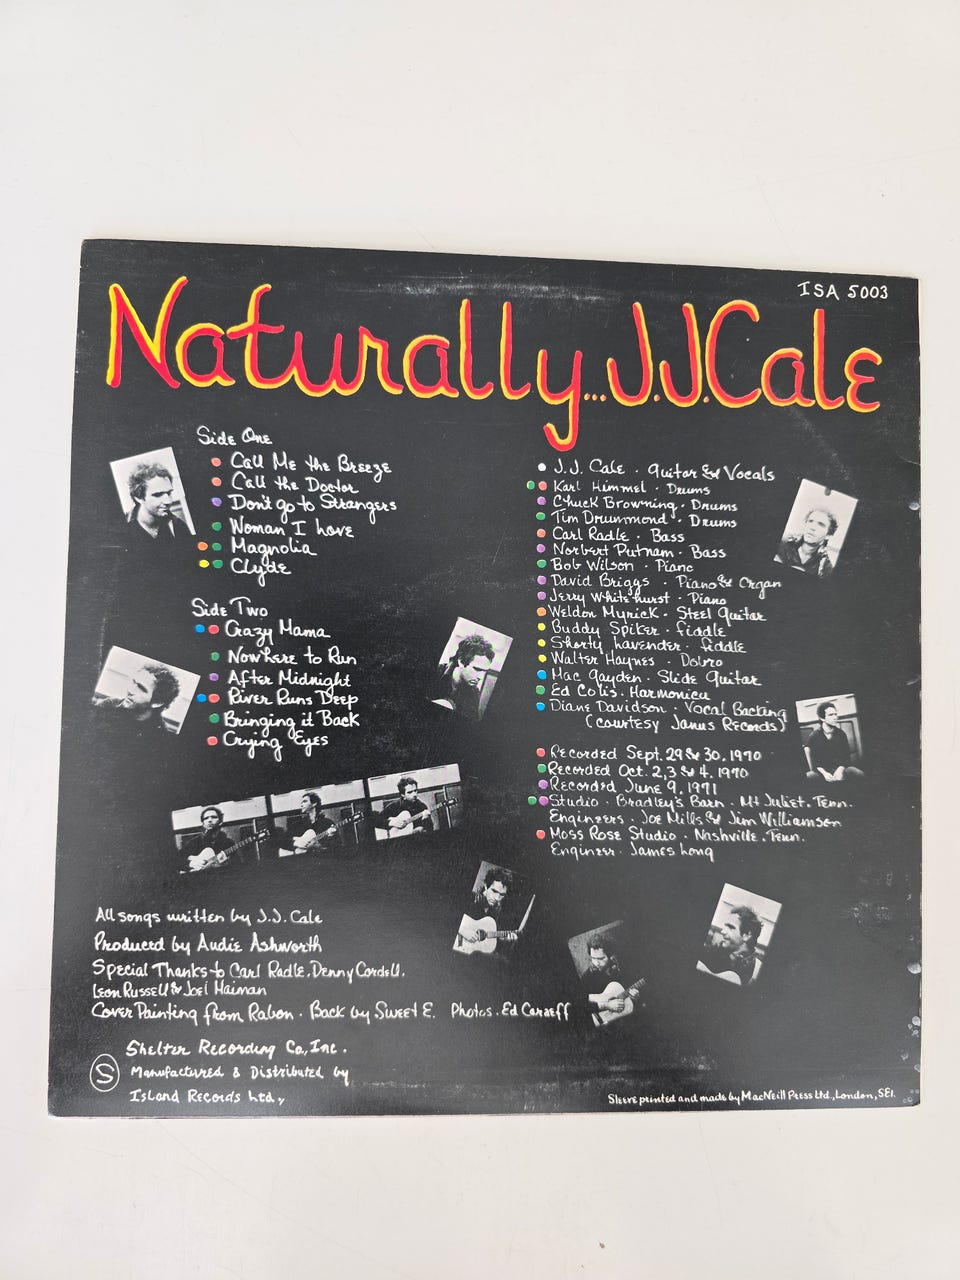 ISA 5003
Naturally... J.J. Cale
Side One
Call Me the Breeze
Call the Doctor
Don't go to Strangers
Woman I Love
Magnolia
Clyde
Side Two
Crazy Mama
Nowhere to Run
After Midnight
River Runs Deep
Bringing it Back
Crying Eyes
J.J. Cale · guitar & Vocals
Karl Himmel · Drums
Chuck Browning · Drums
Tim Drummond · Drums
Carl Radle · Bass
Norbert Putnam · Bass
Bob Wilson · Piano
David Briggs · Piano & Organ
Jerry Whitehurst · Piano
Weldon Myrick · Steel guitar
Buddy Spiker · fiddle
Shorty Lavender · fiddle
Walter Haynes · Dobro
Mac Gayden · Slide Guitar
Ed Colis · Harmonica
Diane Davidson · Vocal Backing
(courtesy Janus Records)
Recorded Sept. 29 & 30, 1970
Recorded Oct. 2, 3 & 4, 1970
Recorded June 9, 1971
Studio · Bradley's Barn · Mt Juliet, Tenn.
Engineers · Joe Mills & Jim Williamson
Moss Rose Studio · Nashville, Tenn.
Engineer · James Long
All songs written by J.J. Cale
Produced by Audie Ashworth
Special Thanks to Carl Radle, Denny Cordell,
Leon Russell & Joel Maiman
Cover Painting from Rabon · Back by Sweet E. Photos · Ed Caraeff
Shelter Recording Co., Inc.
S
Manufactured & Distributed by
Island Records Ltd,
Sleeve printed and made by MacNeill Press Ltd., London, SE1.